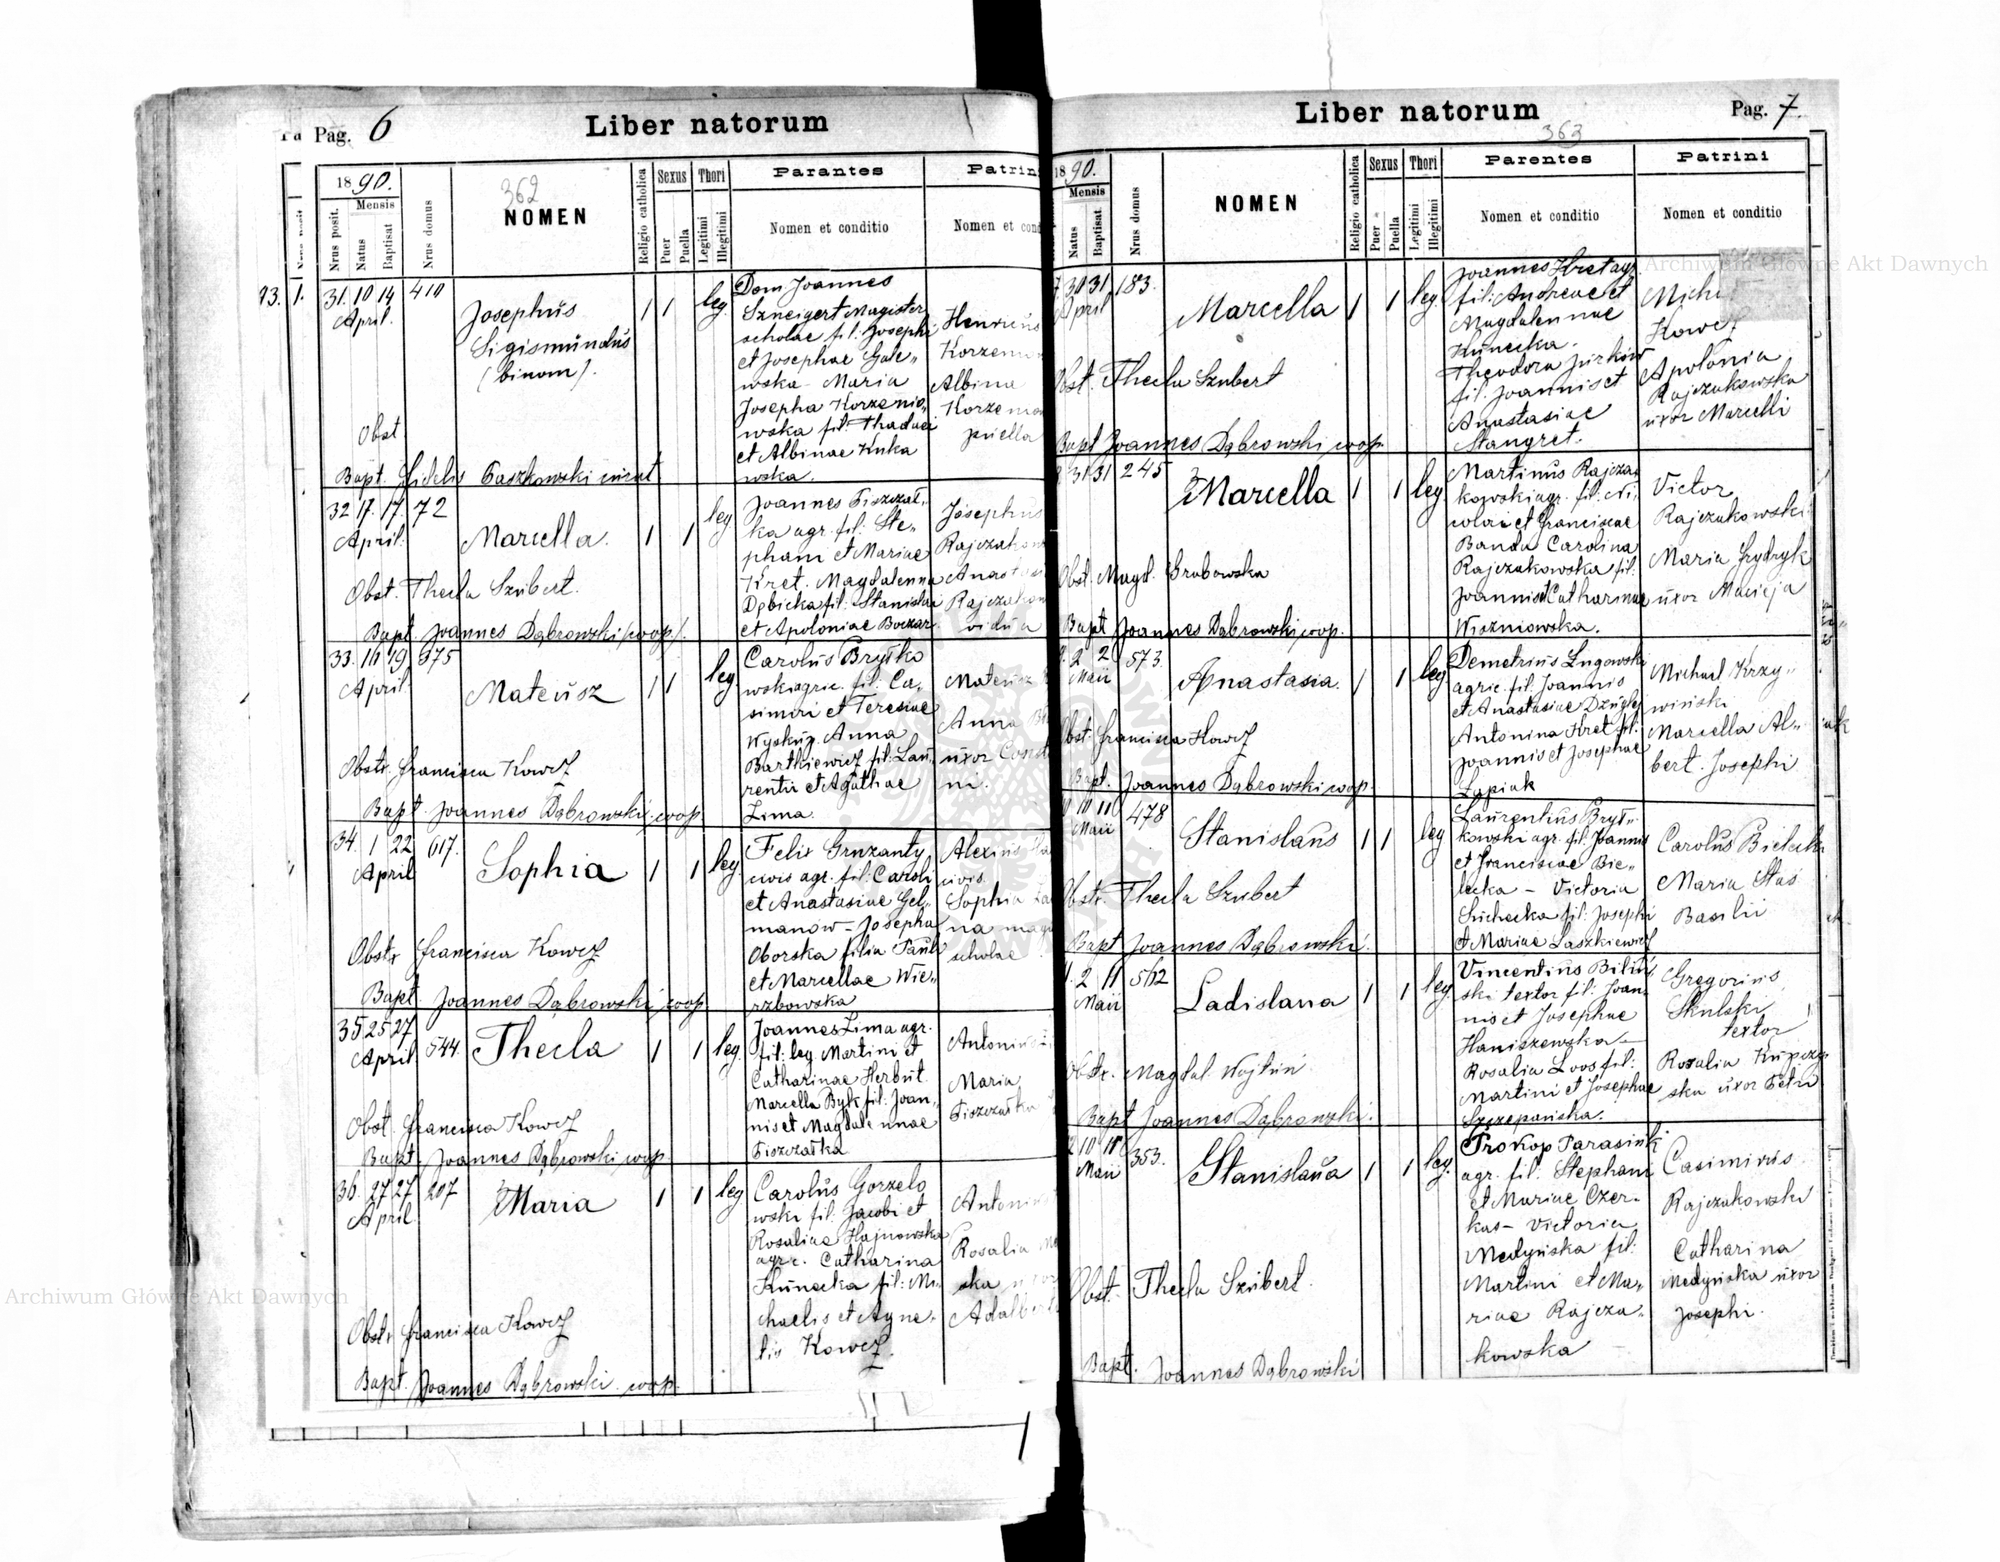 Pag. 6
Liber natorum
1890.
362
Mensis
Nrus posit.
Natus
Baptisat
Nrus domus
NOMEN
Religio catholica
Sexus
Puer
Puella
Thori
Legitimi
Illegitimi
Parantes
Nomen et conditio
Patrini
Nomen et cond
31. 10 14 410
April.
Josephus
Sigismundus
(binom).
1 1 leg.
Dom Joannes
Szneigert Magister
scholae fil. Josephi
et Josephae Gale-
wska - Maria
Josepha Korzenio-
wska fil. Thadaei
et Albinae Kuka
wska.
Henricus
Albina
puella
Obst
Bapt. Fidelis Paszkowski curat
32 17. 17. 72
April.
Marcella.
1 1 leg
Joannes Piszczat-
ka agr. fil. Ste-
phani et Mariae
Kret. Magdalenna
Dębicka fil. Stanislai
et Apoloniae Boczar.
Josephus
vidua
Obst. Thecla Szubert.
Bapt. Joannes Dąbrowski coop.
33. 19 675
April.
Mateusz
1 1 leg.
Carolus Bryłko
wski agric. fil. Ca-
simiri et Teresiae
Wyskup. Anna
Bartkiewicz fil. Lau-
rentii et Agathae
Zima.
Mateusz
Anna
uxor
ni.
Obstr. Francisca Kowcz
Bapt. Joannes Dąbrowski coop.
34. 1 22 617.
April
Sophia
1 1 leg
Felix Gruzanty
civis agr. fil. Caroli
et Anastasiae Gel-
manów - Josepha
Oborska filia Pauli
et Marcellae Wie-
rzbowska
Alexius
civis.
Sophia
scholae
Obstr Francisca Kowcz
Bapt. Joannes Dąbrowski coop.
35 25 27
April 544.
Thecla
1 1 leg.
Joannes Zima agr.
fil. leg. Martini et
Catharinae Herbut.
Marcella Byk fil. Joan-
nis et Magdalennae
Piszczatka
Maria
Piszczatka
Obst. Francisca Kowcz
Bapt. Joannes Dąbrowski coop
36. 27 27 207
April
Maria
1 1 leg
Carolus Gorzelo
wski fil. Jacobi et
Rosaliae Hajnowska
agric. Catharina
Kunecka fil. Mi-
chaelis et Agne-
tis Kowcz.
Rosalia
Obstr Francisca Kowcz
Bapt. Joannes Dąbrowski coop.
Liber natorum
Pag. 7.
363
1890.
Mensis
Natus
Baptisat
Nrus domus
NOMEN
Religio catholica
Sexus
Puer
Puella
Thori
Legitimi
Illegitimi
Parentes
Nomen et conditio
Patrini
Nomen et conditio
30 31 183.
April
Marcella
1 1 leg.
Joannes Kret agr
fil. Andreae et
Magdalennae
Kunecka.
Theodora Jurków
fil. Joannis et
Anastasiae
Stangret.
Kowcz
Apolonia
Rajczakowska
uxor Marcelli
Obst. Thecla Szubert
Bapt Joannes Dąbrowski, coop.
31 31 245
Marcella
1 1 leg
Martinus Rajcza
kowski agr. fil. Ni-
colai et Franciscae
Banda Carolina
Rajczakowska fil.
Joannis et Catharinae
Wiszniowska.
Victor
Rajczakowski.
Maria Szydryk
uxor Macieja
Obst. Magd. Grabowska
Bapt Joannes Dąbrowski, coop.
2 2 573.
Maii
Anastasia.
1 1 leg
Demetrius Ługowski
agric. fil. Joannis
et Anastasiae Dziugiej
Antonina Kret fil.
Joannis et Josephae
Łapiak
Michael Krzy-
wiński
Marcella Al-
bert. Josephi
Obst. Francisca Kowcz
Bapt. Joannes Dąbrowski coop.
10 11 478
Maii
Stanislaus
1 1 leg
Laurentius Brył-
kowski agr. fil. Joannis
et Franciscae Bie-
lecka - Victoria
Suchecka fil. Josephi
et Mariae Laszkiewicz
Carolus Bielecki
Maria Stas
Basilii
Obstr. Thecla Szubert
Bapt Joannes Dąbrowski.
2 11 562
Maii
Ladislaua
1 1 leg
Vincentius Biliń-
ski textor fil. Joan-
nis et Josephae
Haniszewska -
Rosalia Loos fil.
Martini et Josephae
Szczepańska.
Gregorius
Skulski
textor
Rosalia Kupczy
ska uxor Petri
Obstr. Magdal. Wojtuń
Bapt Joannes Dąbrowski.
10 11 353.
Maii
Stanislaua
1 1 leg.
Prokop Parasiuk
agr. fil. Stephani
et Mariae Czer-
kas - Victoria
Medyńska fil.
Martini et Ma-
riae Rajcza-
kowska
Casimirus
Rajczakowski
Catharina
Medyńska uxor
Josephi.
Obst. Thecla Szubert.
Bapt. Joannes Dąbrowski
Archiwum Główne Akt Dawnych
Archiwum Główne Akt Dawnych